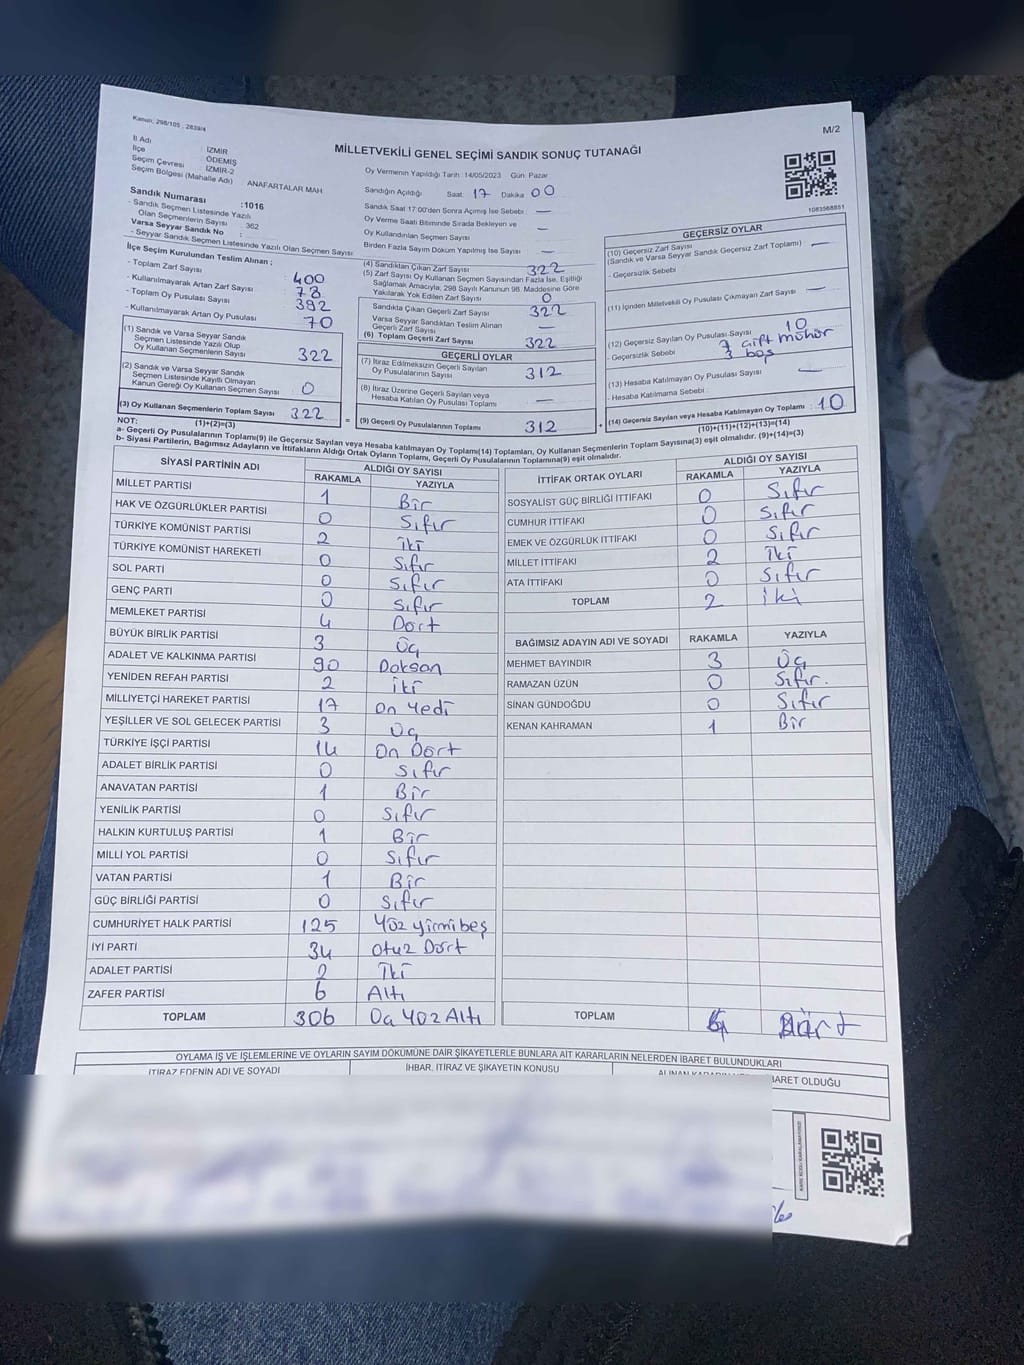 Kanun: 298/105 , 2839/4
M/2
MİLLETVEKİLİ GENEL SEÇİMİ SANDIK SONUÇ TUTANAĞI
İl Adı : İZMİR
İlçe : ÖDEMİŞ
Seçim Çevresi : İZMİR-2
Seçim Bölgesi (Mahalle Adı) : ANAFARTALAR MAH
Sandık Numarası :1016
- Sandık Seçmen Listesinde Yazılı
Olan Seçmenlerin Sayısı : 362
Varsa Seyyar Sandık No :
- Seyyar Sandık Seçmen Listesinde Yazılı Olan Seçmen Sayısı:
İlçe Seçim Kurulundan Teslim Alınan ;
- Toplam Zarf Sayısı : 400
- Kullanılmayarak Artan Zarf Sayısı : 78
- Toplam Oy Pusulası Sayısı : 392
- Kullanılmayarak Artan Oy Pusulası : 70
(1) Sandık ve Varsa Seyyar Sandık
Seçmen Listesinde Yazılı Olup
Oy Kullanan Seçmenlerin Sayısı 322
(2) Sandık ve Varsa Seyyar Sandık
Seçmen Listesinde Kayıtlı Olmayan
Kanun Gereği Oy Kullanan Seçmen Sayısı 0
(3) Oy Kullanan Seçmenlerin Toplam Sayısı 322 =
(1)+(2)=(3)
Oy Vermenin Yapıldığı Tarih :14/05/2023 Gün Pazar
Sandığın Açıldığı Saat 17 Dakika 00
Sandık Saat 17:00'den Sonra Açılmış İse Sebebi —
Oy Verme Saati Bitiminde Sırada Bekleyen ve
Oy Kullandırılan Seçmen Sayısı —
Birden Fazla Sayım Döküm Yapılmış İse Sayısı —
(4) Sandıktan Çıkan Zarf Sayısı 322
(5) Zarf Sayısı Oy Kullanan Seçmen Sayısından Fazla İse, Eşitliği
Sağlamak Amacıyla, 298 Sayılı Kanunun 98. Maddesine Göre
Yakılarak Yok Edilen Zarf Sayısı 0
Sandıkta Çıkan Geçerli Zarf Sayısı 322
Varsa Seyyar Sandıktan Teslim Alınan
Geçerli Zarf Sayısı —
(6) Toplam Geçerli Zarf Sayısı 322
GEÇERLİ OYLAR
(7) İtiraz Edilmeksizin Geçerli Sayılan
Oy Pusulalarının Sayısı 312
(8) İtiraz Üzerine Geçerli Sayılan veya
Hesaba Katılan Oy Pusulası Toplamı —
(9) Geçerli Oy Pusulalarının Toplamı 312 +
1083568851
GEÇERSİZ OYLAR
(10) Geçersiz Zarf Sayısı —
(Sandık ve Varsa Seyyar Sandık Geçersiz Zarf Toplamı)
- Geçersizlik Sebebi
(11) İçinden Milletvekili Oy Pusulası Çıkmayan Zarf Sayısı —
(12) Geçersiz Sayılan Oy Pusulası Sayısı 10
- Geçersizlik Sebebi 7 çift mühür
3 boş
(13) Hesaba Katılmayan Oy Pusulası Sayısı —
- Hesaba Katılmama Sebebi
(14) Geçersiz Sayılan veya Hesaba Katılmayan Oy Toplamı 10
(10)+(11)+(12)+(13)=(14)
NOT:
a- Geçerli Oy Pusulalarının Toplamı(9) ile Geçersiz Sayılan veya Hesaba katılmayan Oy Toplamı(14) Toplamları, Oy Kullanan Seçmenlerin Toplam Sayısına(3) eşit olmalıdır. (9)+(14)=(3)
b- Siyasi Partilerin, Bağımsız Adayların ve İttifakların Aldığı Ortak Oyların Toplamı, Geçerli Oy Pusulalarının Toplamına(9) eşit olmalıdır.
SİYASİ PARTİNİN ADI ALDIĞI OY SAYISI
RAKAMLA YAZIYLA
MİLLET PARTİSİ 1 Bir
HAK VE ÖZGÜRLÜKLER PARTİSİ 0 Sıfır
TÜRKİYE KOMÜNİST PARTİSİ 2 iki
TÜRKİYE KOMÜNİST HAREKETİ 0 Sıfır
SOL PARTİ 0 Sıfır
GENÇ PARTİ 0 Sıfır
MEMLEKET PARTİSİ 4 Dört
BÜYÜK BİRLİK PARTİSİ 3 Üç
ADALET VE KALKINMA PARTİSİ 90 Doksan
YENİDEN REFAH PARTİSİ 2 iki
MİLLİYETÇİ HAREKET PARTİSİ 17 on yedi
YEŞİLLER VE SOL GELECEK PARTİSİ 3 Üç
TÜRKİYE İŞÇİ PARTİSİ 14 on Dört
ADALET BİRLİK PARTİSİ 0 Sıfır
ANAVATAN PARTİSİ 1 Bir
YENİLİK PARTİSİ 0 Sıfır
HALKIN KURTULUŞ PARTİSİ 1 Bir
MİLLİ YOL PARTİSİ 0 Sıfır
VATAN PARTİSİ 1 Bir
GÜÇ BİRLİĞİ PARTİSİ 0 Sıfır
CUMHURİYET HALK PARTİSİ 125 Yüz yirmi beş
İYİ PARTİ 34 Otuz Dört
ADALET PARTİSİ 2 İki
ZAFER PARTİSİ 6 Altı
TOPLAM 306 Üç Yüz Altı
İTTİFAK ORTAK OYLARI ALDIĞI OY SAYISI
RAKAMLA YAZIYLA
SOSYALİST GÜÇ BİRLİĞİ İTTİFAKI 0 Sıfır
CUMHUR İTTİFAKI 0 Sıfır
EMEK VE ÖZGÜRLÜK İTTİFAKI 0 Sıfır
MİLLET İTTİFAKI 2 iki
ATA İTTİFAKI 0 Sıfır
TOPLAM 2 iki
BAĞIMSIZ ADAYIN ADI VE SOYADI RAKAMLA YAZIYLA
MEHMET BAYINDIR 3 Üç
RAMAZAN ÜZÜN 0 Sıfır.
SİNAN GÜNDOĞDU 0 Sıfır
KENAN KAHRAMAN 1 Bir
TOPLAM 4 Dört
OYLAMA İŞ VE İŞLEMLERİNE VE OYLARIN SAYIM DÖKÜMÜNE DAİR ŞİKAYETLERLE BUNLARA AİT KARARLARIN NELERDEN İBARET BULUNDUKLARI
İTİRAZ EDENİN ADI VE SOYADI İHBAR, İTİRAZ VE ŞİKAYETİN KONUSU BARET OLDUĞU